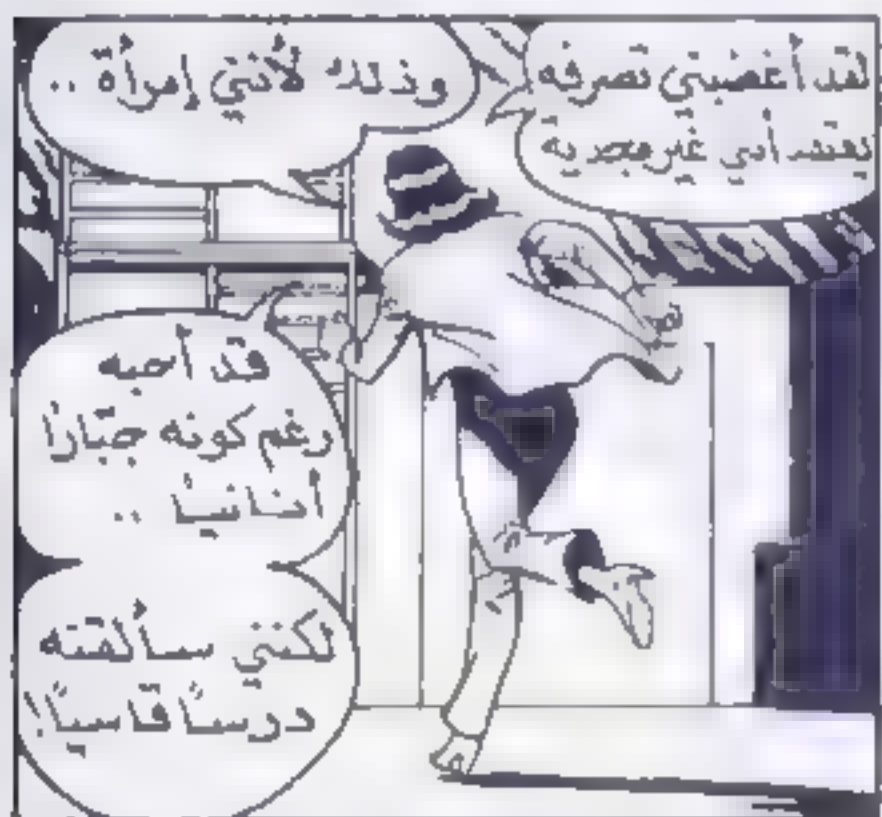 لقد أغضبني تصرفه
يعتقد أني غير مجدية
وذلك لأنني إمرأة ..
قد أحبه
رغم كونه جبّارا
أنانياً ..
لكنني سألقنه
درساً قاسياً!